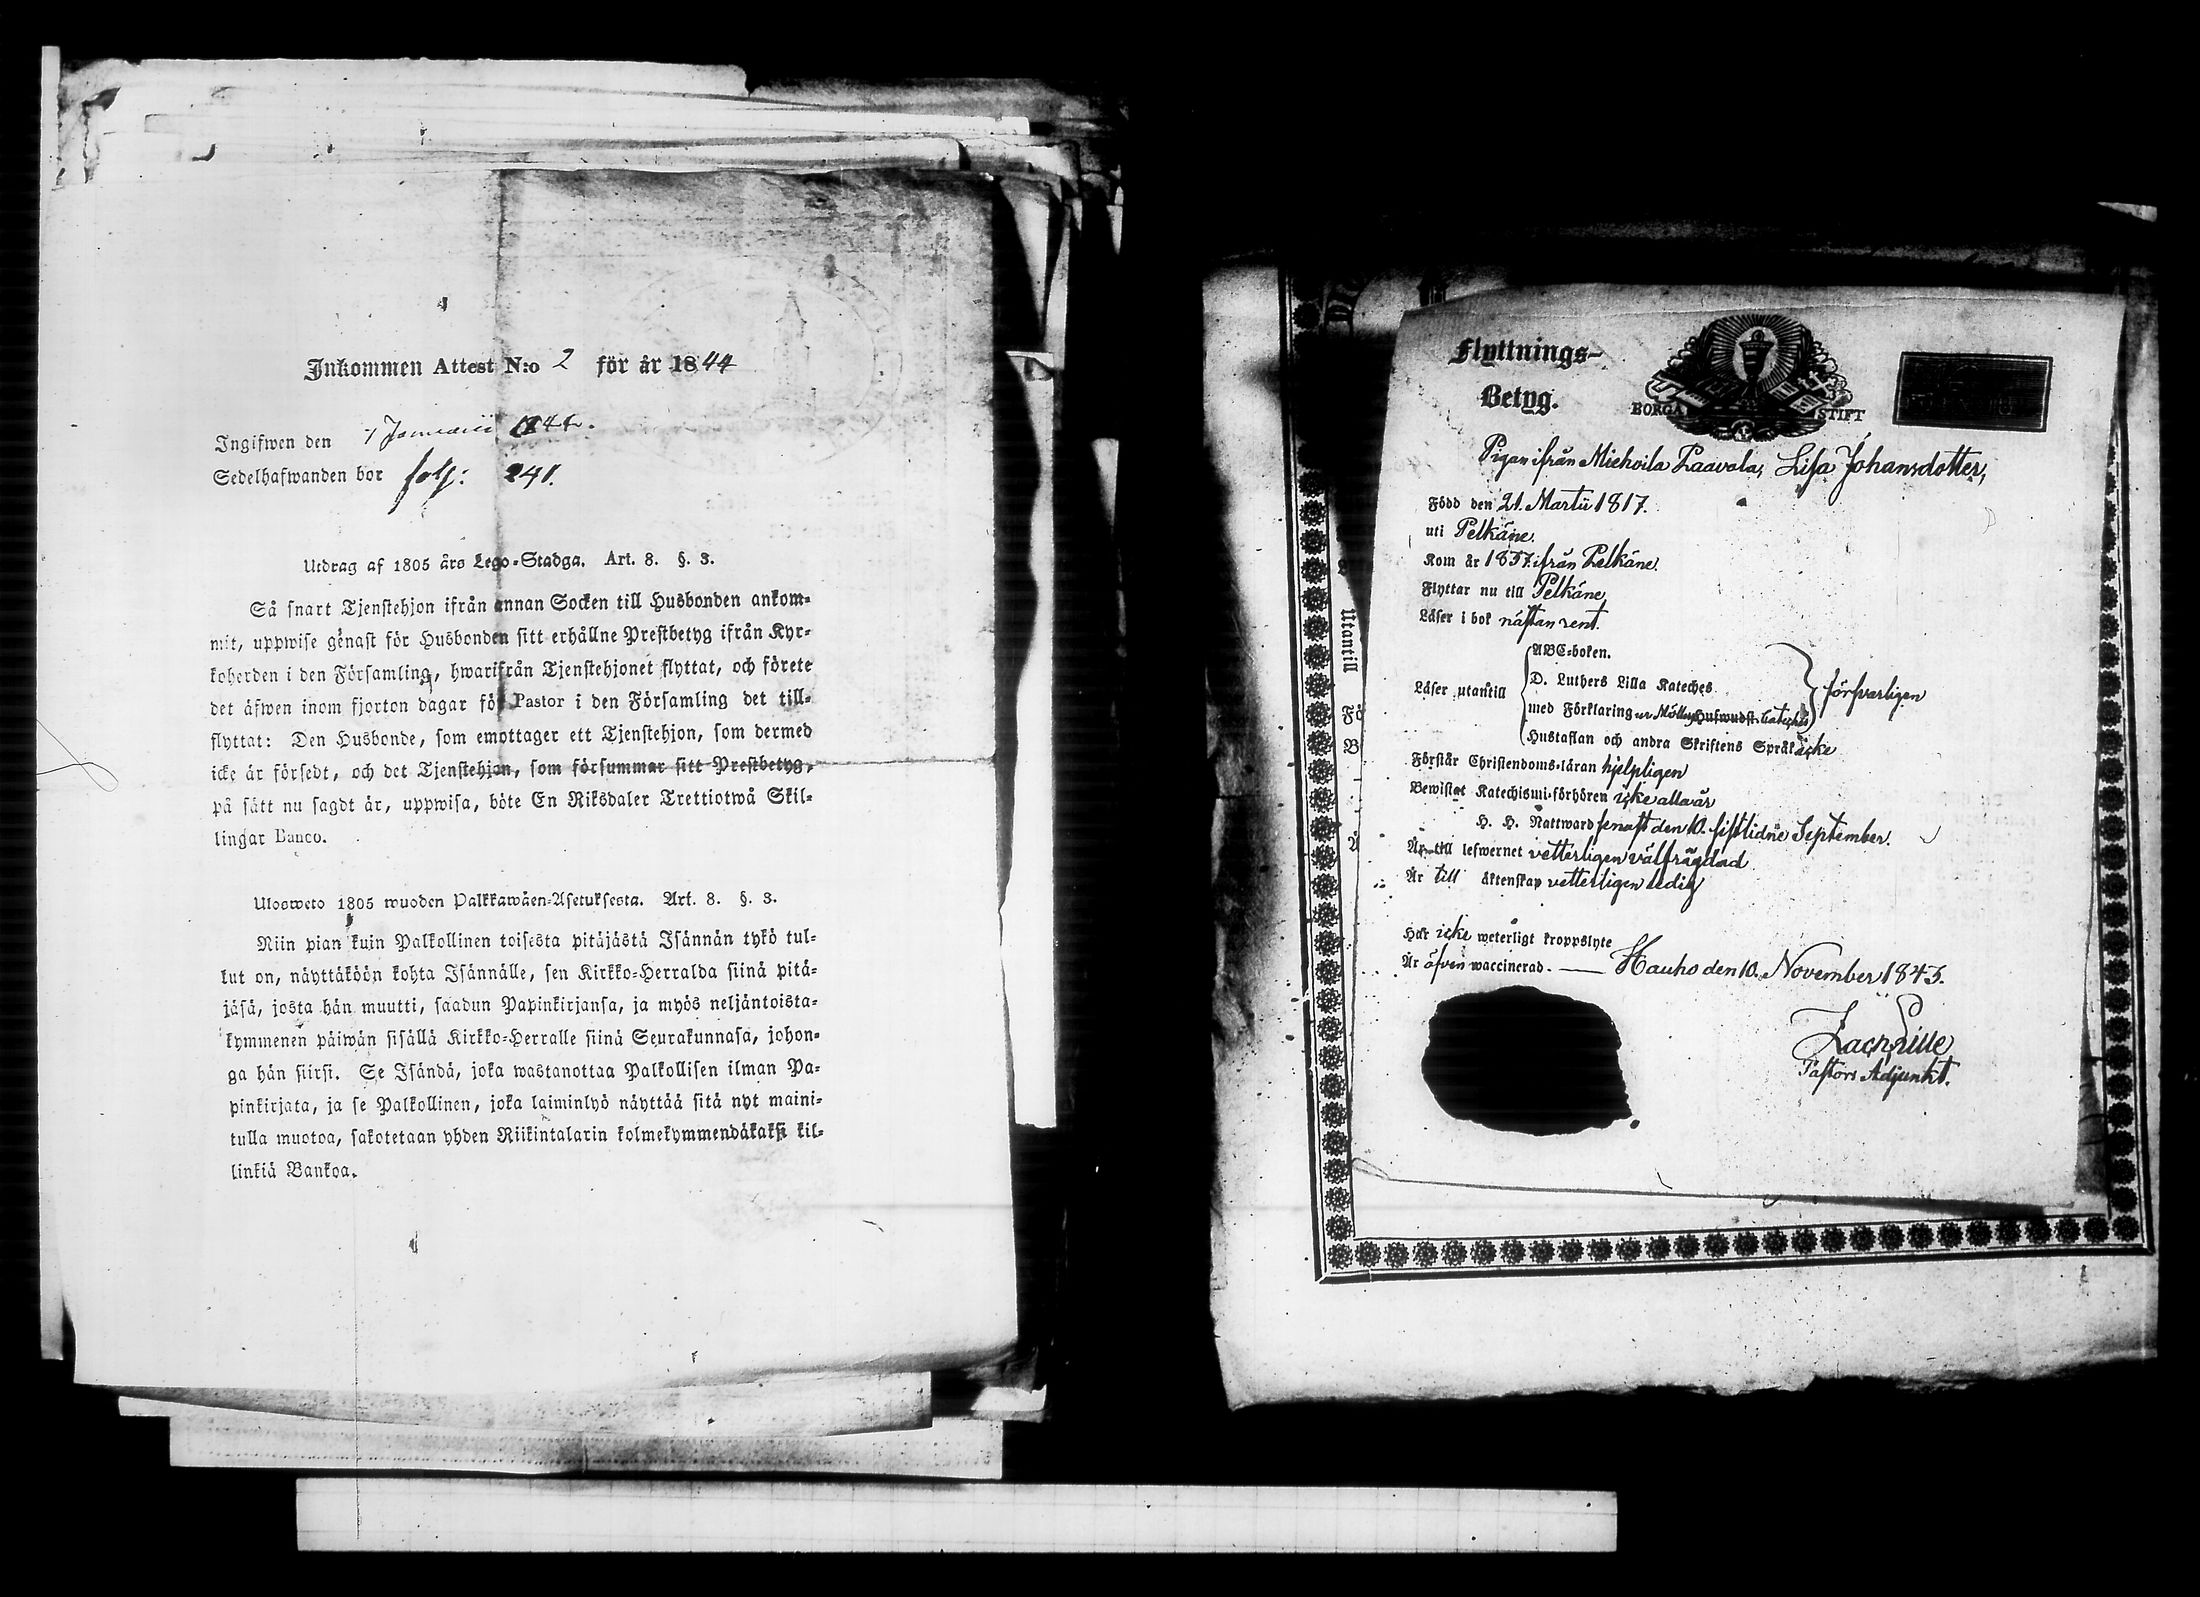 Inkommen Attest N:o 2 för år 1844
Ingifwen den 7 Januarii 1844.
Sedelhafwanden bor fol: 241.
Utdrag af 1805 års Lego-Stadga. Art. 8. §. 3.
Så snart Tjenstehjon ifrån annan Socken till Husbonden ankom-
mit, uppwise genast för Husbonden sitt erhållne Prestbetyg ifrån Kyr-
koherden i den Församling, hwarifrån Tjenstehjonet flyttat, och förete
det äfwen inom fjorton dagar för Pastor i den Församling det till-
flyttat: Den Husbonde, som emottager ett Tjenstehjon, som dermed
icke är försedt, och det Tjenstehjon, som försummar sitt Prestbetyg,
på sätt nu sagdt är, uppwisa, böte En Riksdaler Trettiotwå Skil-
lingar Banco.
Ulosweto 1805 wuoden Palkkawäen-Asetuksesta. Art. 8. §. 3.
Niin pian kuin Palkollinen toisesta pitäjästä Isännän tykö tul-
lut on, näyttäköön kohta Isännälle, sen Kirkko-Herralda siinä pitä-
jäsä, josta hän muutti, saadun Papinkirjansa, ja myös neljäntoista-
kymmenen päiwän sisällä Kirkko-Herralle siinä Seurakunnasa, johon-
ga hän siirsi. Se Isändä, joka wastanottaa Palkollisen ilman Pa-
pinkirjata, ja se Palkollinen, joka laiminlyö näyttää sitä nyt maini-
tulla muotoa, sakotetaan yhden Riikintalarin kolmekymmendäkaksi kil-
linkiä Bankoa.
Flyttnings-
Betyg.
BORGÅ STIFT
Pigan ifrån Miehoila Paavola, Lisa Johansdotter,
Född den 21. Martii 1817.
uti Pelkäne.
Kom år 1837. ifrån Pelkäne.
Flyttar nu till Pelkäne
Läser i bok nästan rent.
ABC-boken.
Läser utantill D. Luthers Lilla Kateches försvarligen
med Förklaring
Hustaflan och andra Skriftens Språk icke
Förstår Christendoms-läran hjelpligen
Bewistat Katechismi-förhören icke alla år
H. H. Nattward senast den 10. sistlidne September.
Är till lefwernet vetterligen välfrägdad
Är till äktenskap vetterligen ledig
Har icke weterligt kroppslyte
Är äfven waccinerad. — Hauho den 10. November 1843.
Pastors Adjunkt.
Utantill
Fö
B